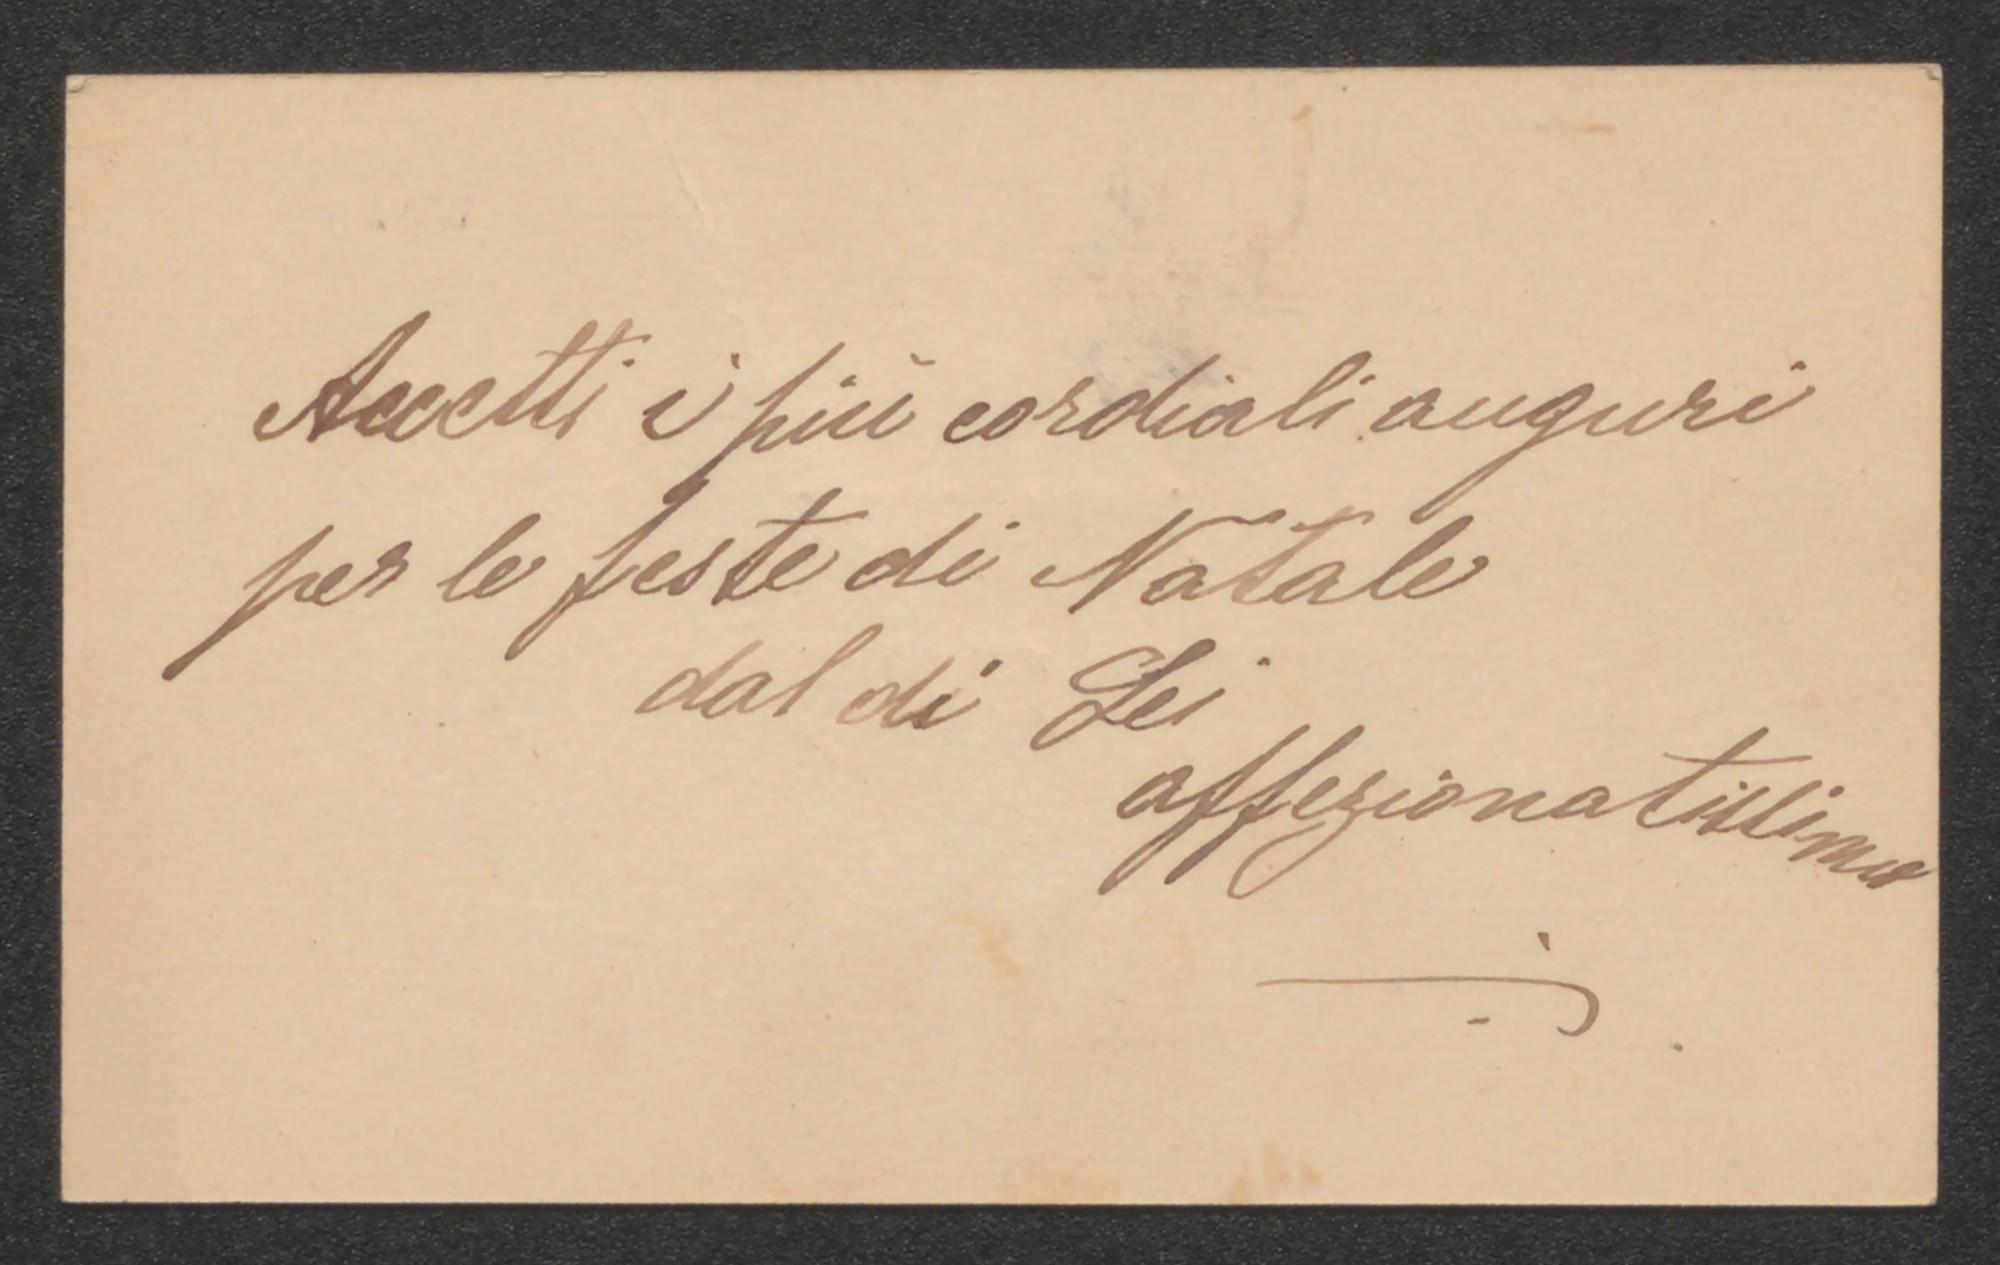 Accetti i più cordiali auguri
per le feste di Natale
dal di Lei
affezionatissimo